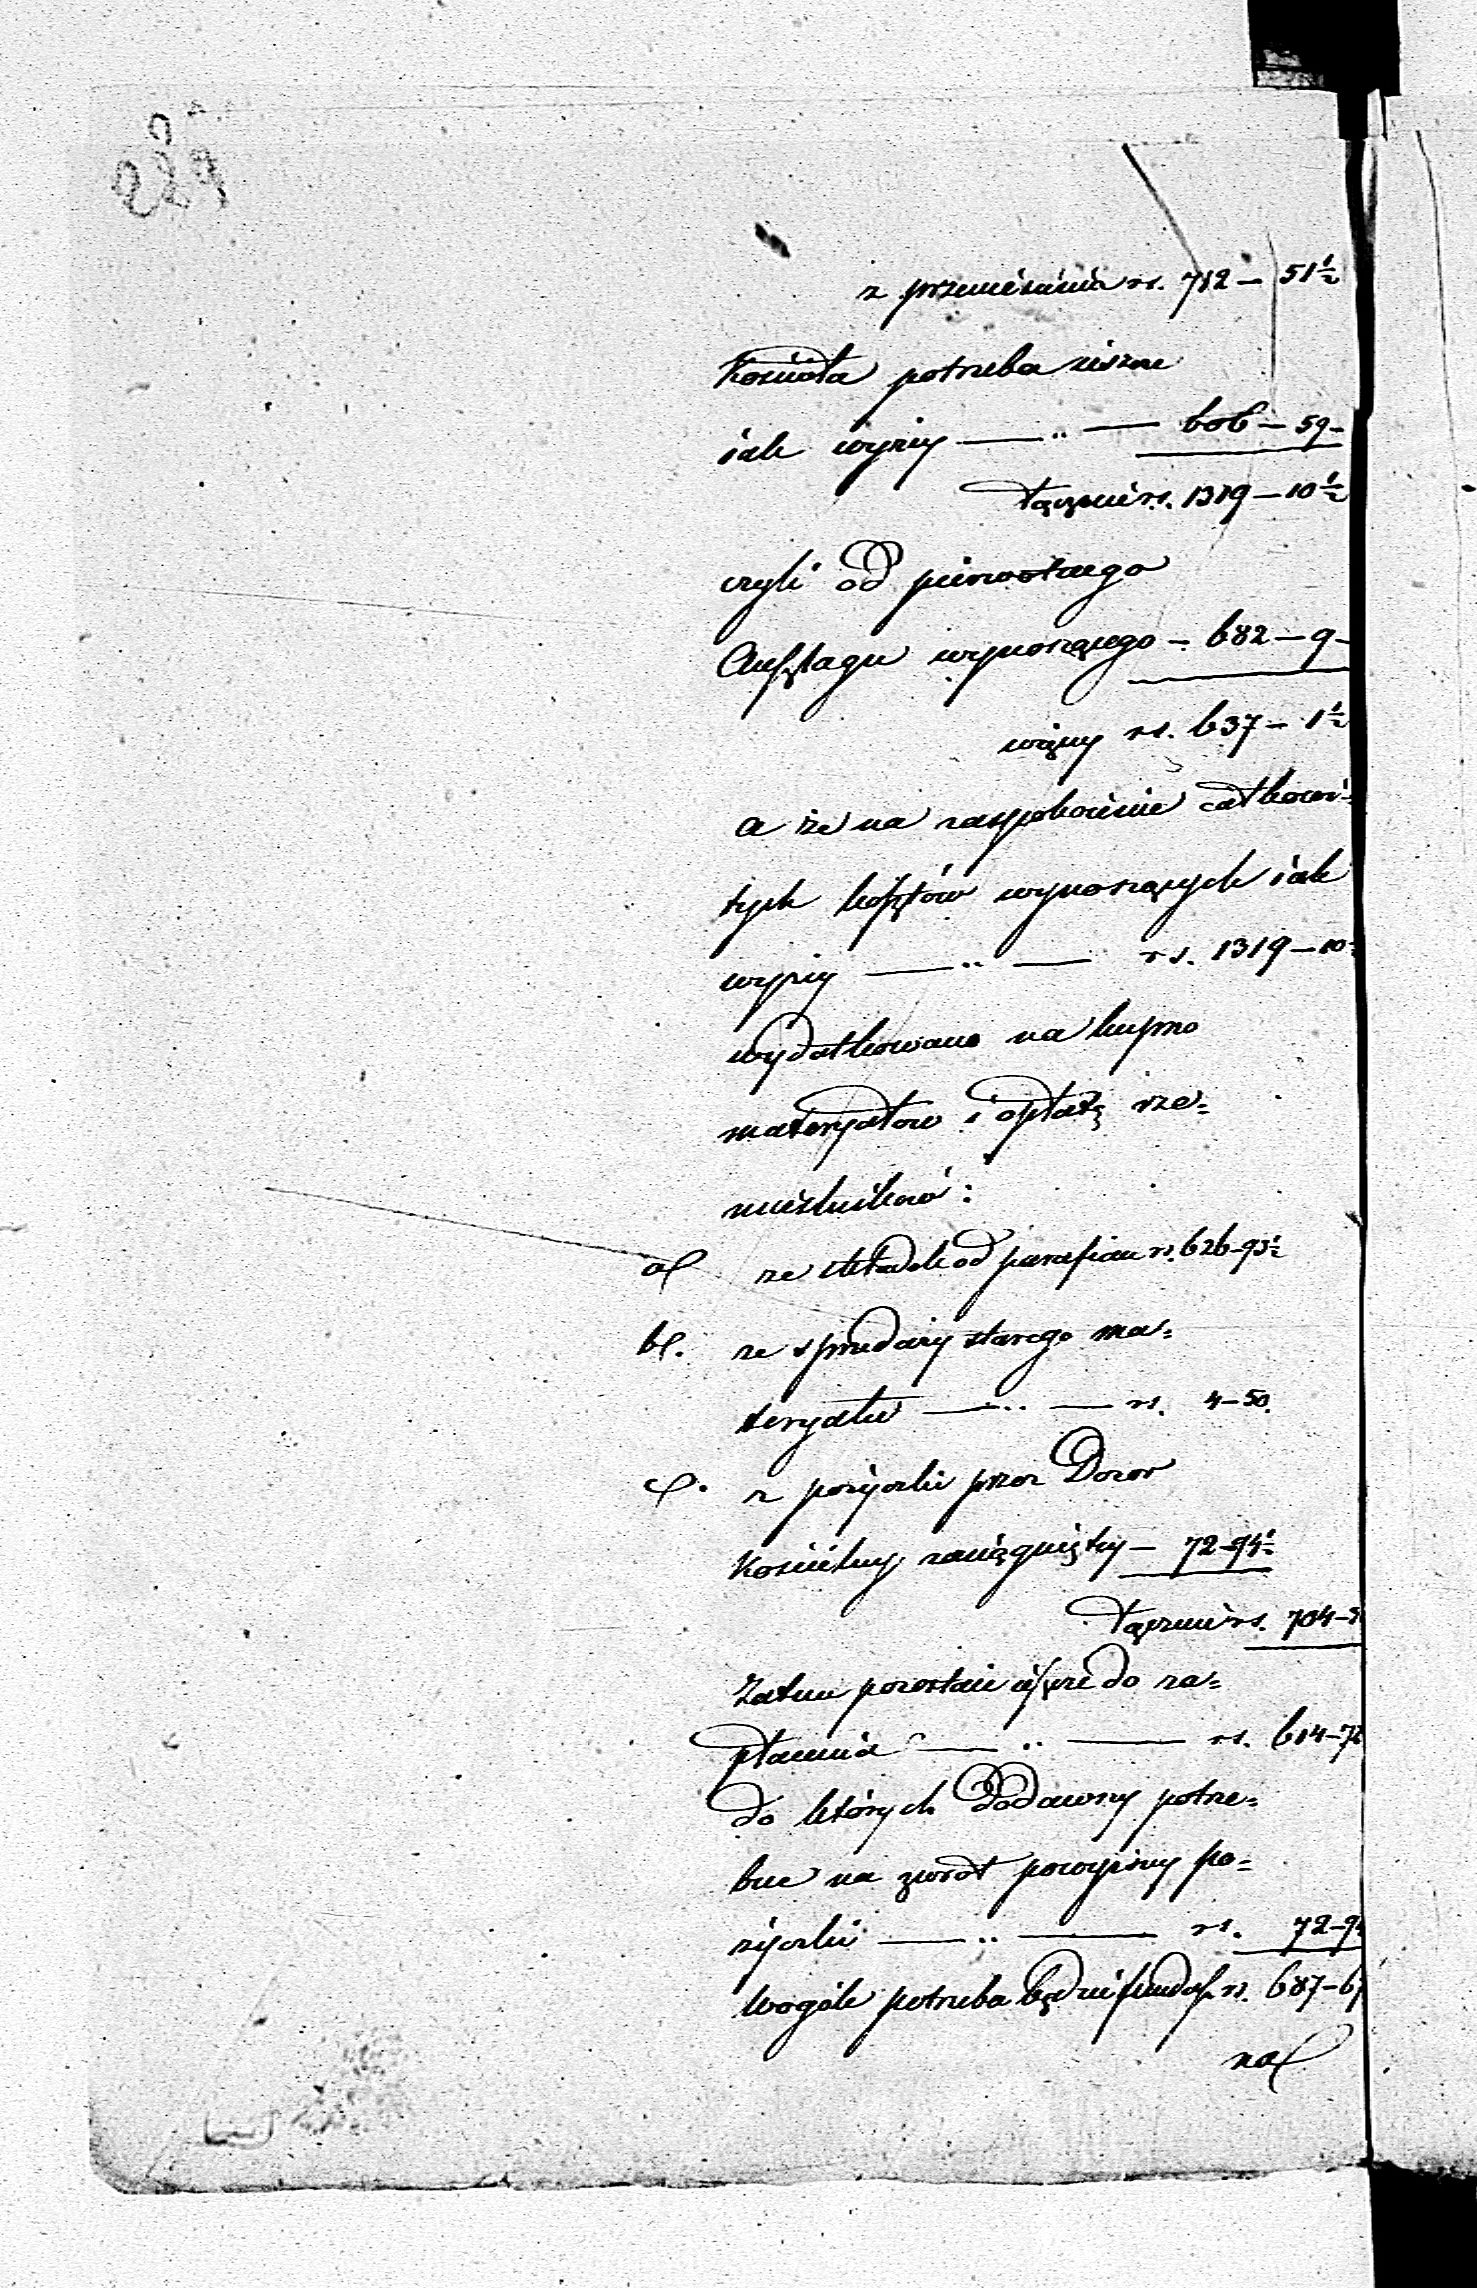 z przeniesienia rs. 712 – 51½
Kościoła potrzeba ieszcze
iak wyżey — „ — 606 – 59 –
Łącznie rs. 1319 – 10½
czyli od pierwotnego
Anszlagu wynoszącego – 682 – 9 –
więcey rs. 637 – 1½
a że na zaspokoienie całkowi=
tych kosztów wynoszących iak
wyżey — „ — rs. 1319 – 10
wydatkowano na kupno
materyałów i opłatę rze=
mieślników:
a/ ze składek od parafian rs. 626–93½
b/. ze sprzedaży starego ma=
teryału — „ — rs. 4–50.
c/. z pożyczki przez Dozór
Kościelny zaciągniętey – 72–94½
Łącznie rs. 704–
Zatem pozostaie ieszcze do za=
płacenia — „ — rs. 614–72
do których dodawszy potrze=
bne na zwrot powyższey po=
życzki — „ — rs. 72–94
wogóle potrzeba będzie fundusz rs. 687–67
na/